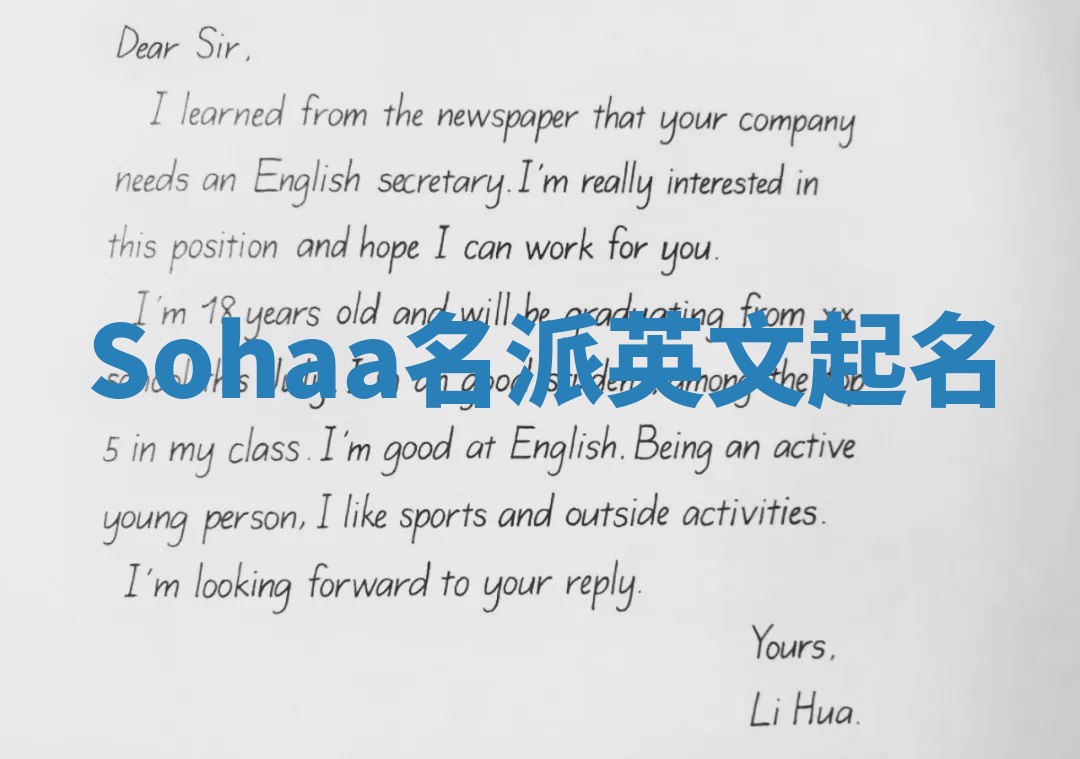 Dear Sir,
I learned from the newspaper that your company
needs an English secretary. I'm really interested in
this position and hope I can work for you.
I'm 18 years old and will be graduating from xx
Sohaa名派英文起名
school this July. I'm a good student, among the top
5 in my class. I'm good at English. Being an active
young person, I like sports and outside activities.
I'm looking forward to your reply.
Yours,
Li Hua.